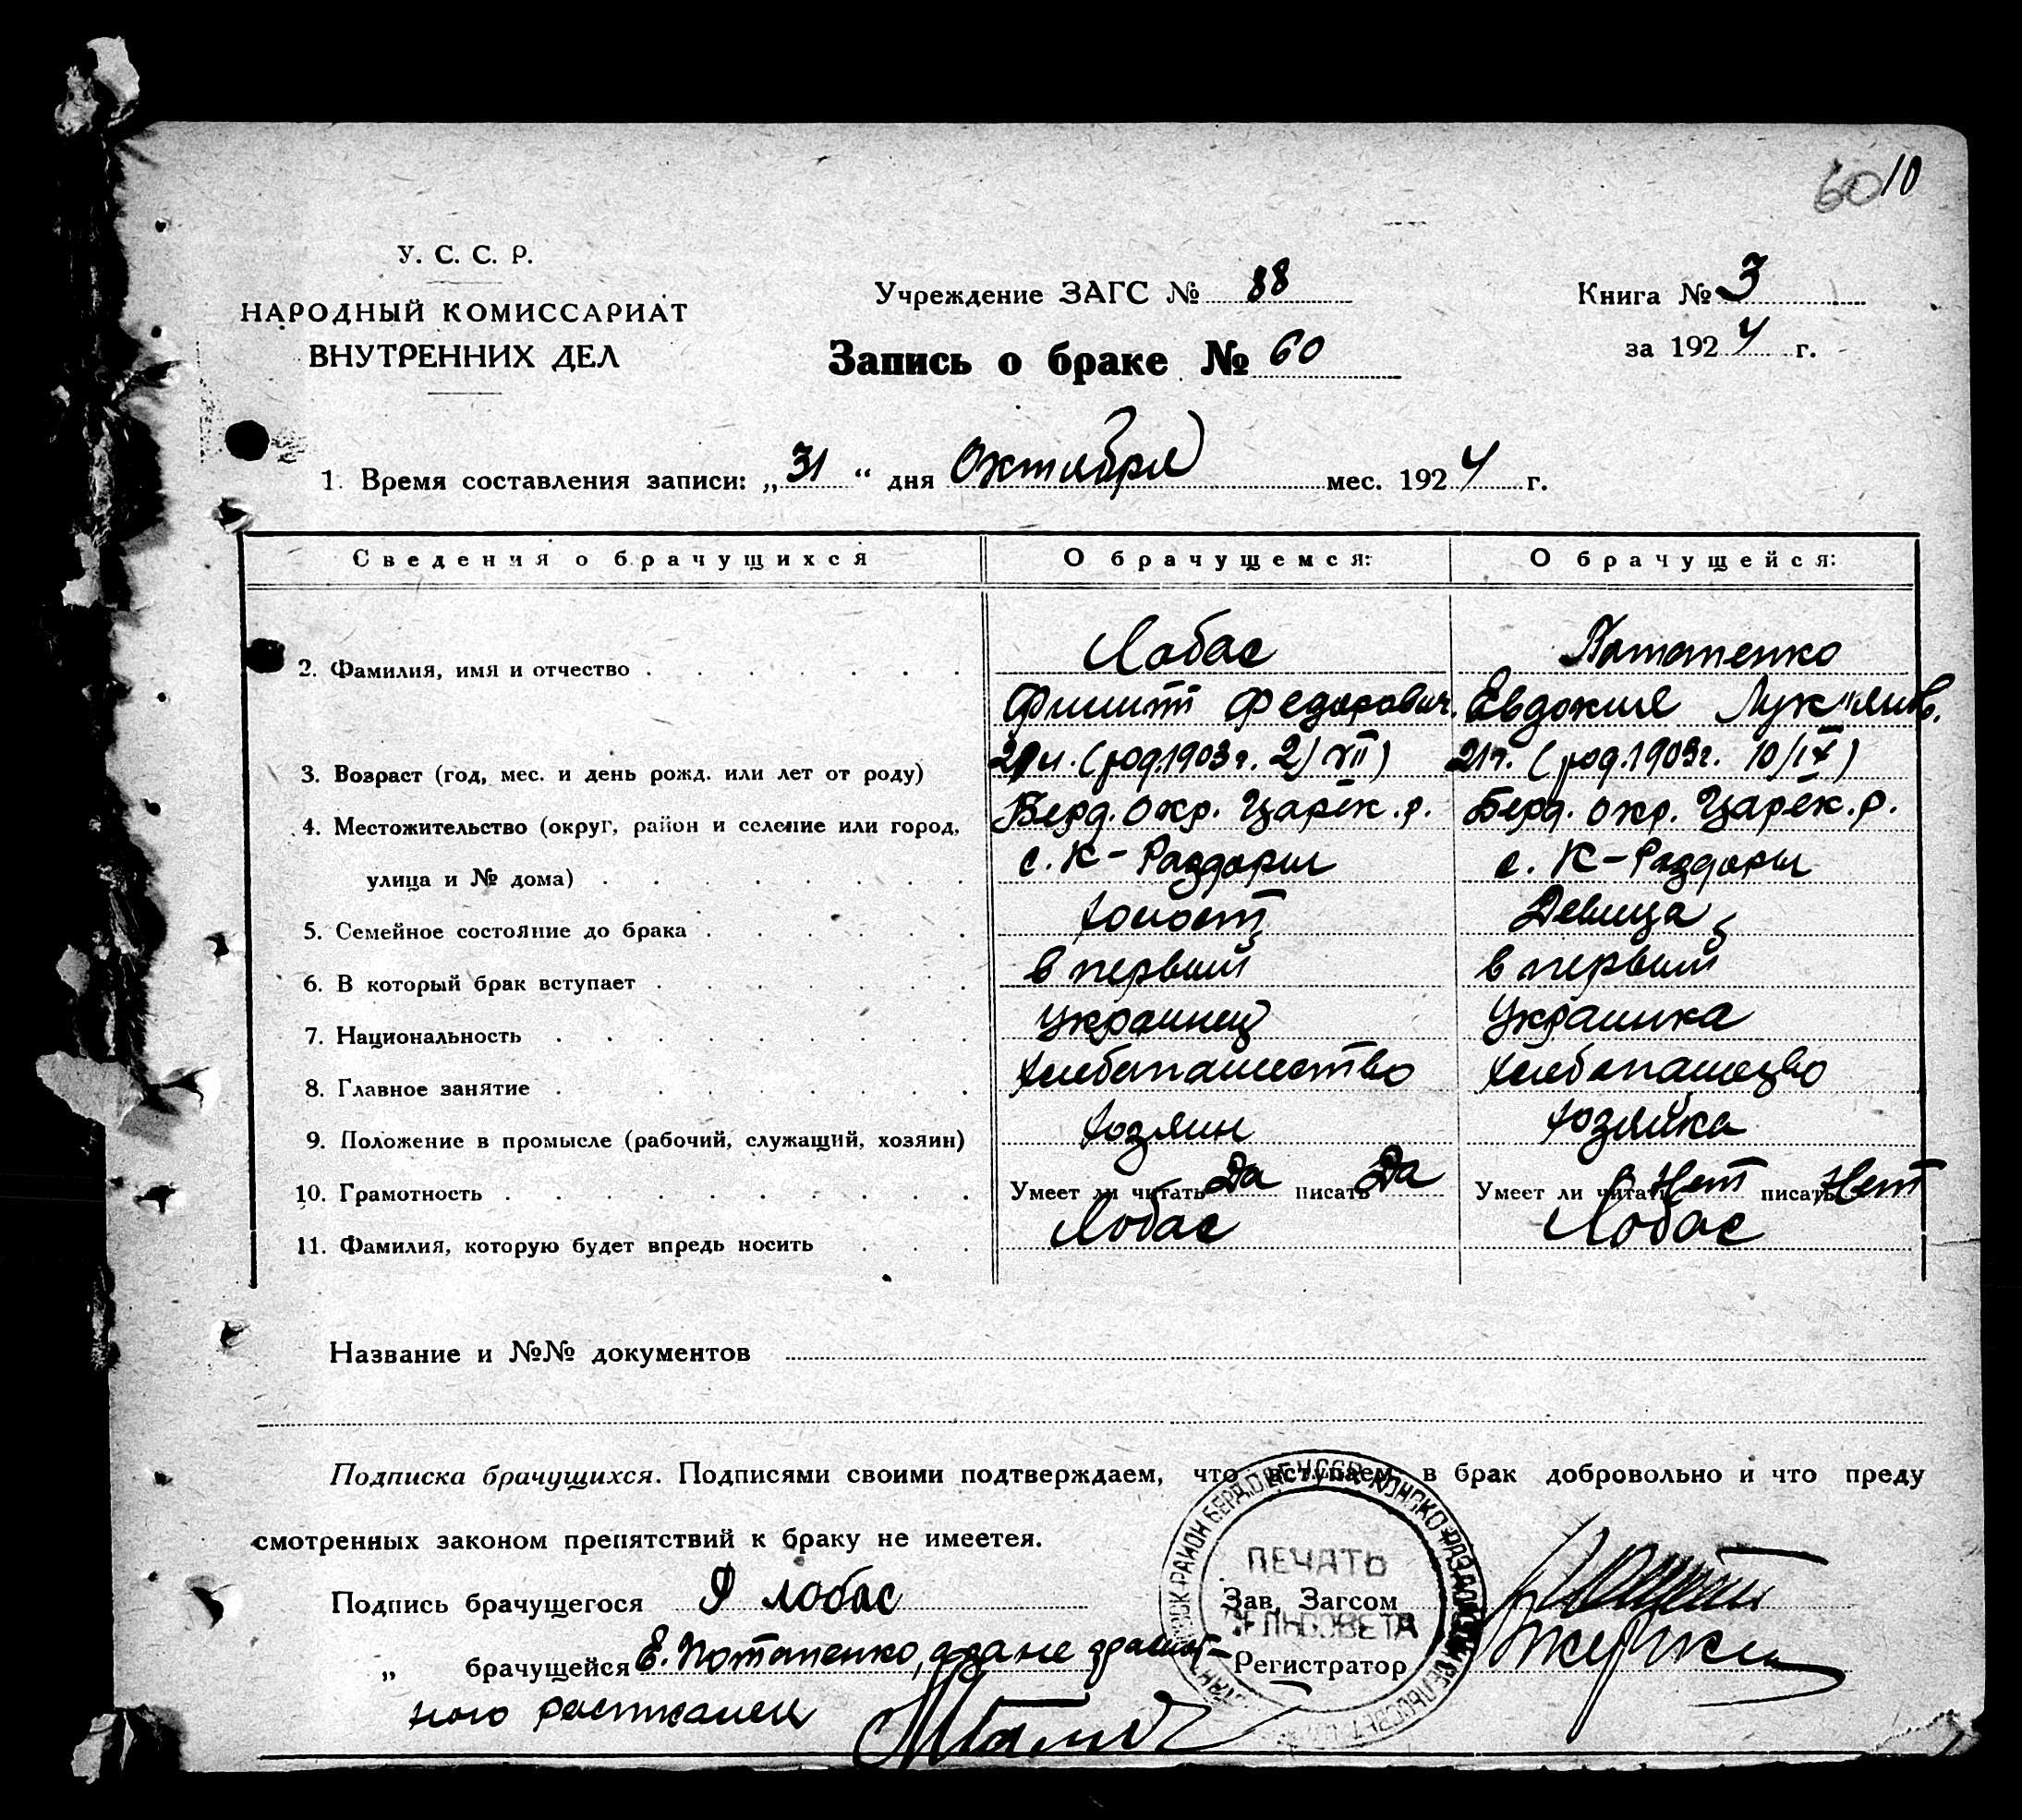 60 10
У. С. С. Р.
НАРОДНЫЙ КОМИССАРИАТ
ВНУТРЕННИХ ДЕЛ
Учреждение ЗАГС № 88
Книга № 3
Запись о браке № 60
за 1924 г.
1. Время составления записи: „31“ дня Октября мес. 1924 г.
Сведения о брачущихся О брачущемся: О брачущейся:
2. Фамилия, имя и отчество Лобас Потапенко
Филипп Федорович. Евдокия Лук"янов.
3. Возраст (год, мес. и день рожд. или лет от роду) 21 л. (род. 1903 г. 2/VII) 21 г. (род. 1903 г. 10/IX)
4. Местожительство (округ, район и селение или город, Берд. окр. Царек. р. Берд. окр. Царек. р.
улица и № дома) с. К-Раздоры с. К-Раздоры
5. Семейное состояние до брака холост Девица
6. В который брак вступает в первый в первый
7. Национальность украинец украинка
8. Главное занятие хлебопашество хлебопашество
9. Положение в промысле (рабочий, служащий, хозяин) хозяин хозяйка
10. Грамотность Умеет ли читать Да писать Да Умеет ли читать Нет писать Нет
11. Фамилия, которую будет впредь носить Лобас Лобас
Название и №№ документов
Подписка брачущихся. Подписями своими подтверждаем, что вступаем в брак добровольно и что преду
смотренных законом препятствий к браку не имеетея.
ПЕЧАТЬ
Подпись брачущегося Ф Лобас Зав. Загсом
СЕЛЬСОВЕТА
„ брачущейся Е. Потапенко, а за не грамот- Регистратор
ного